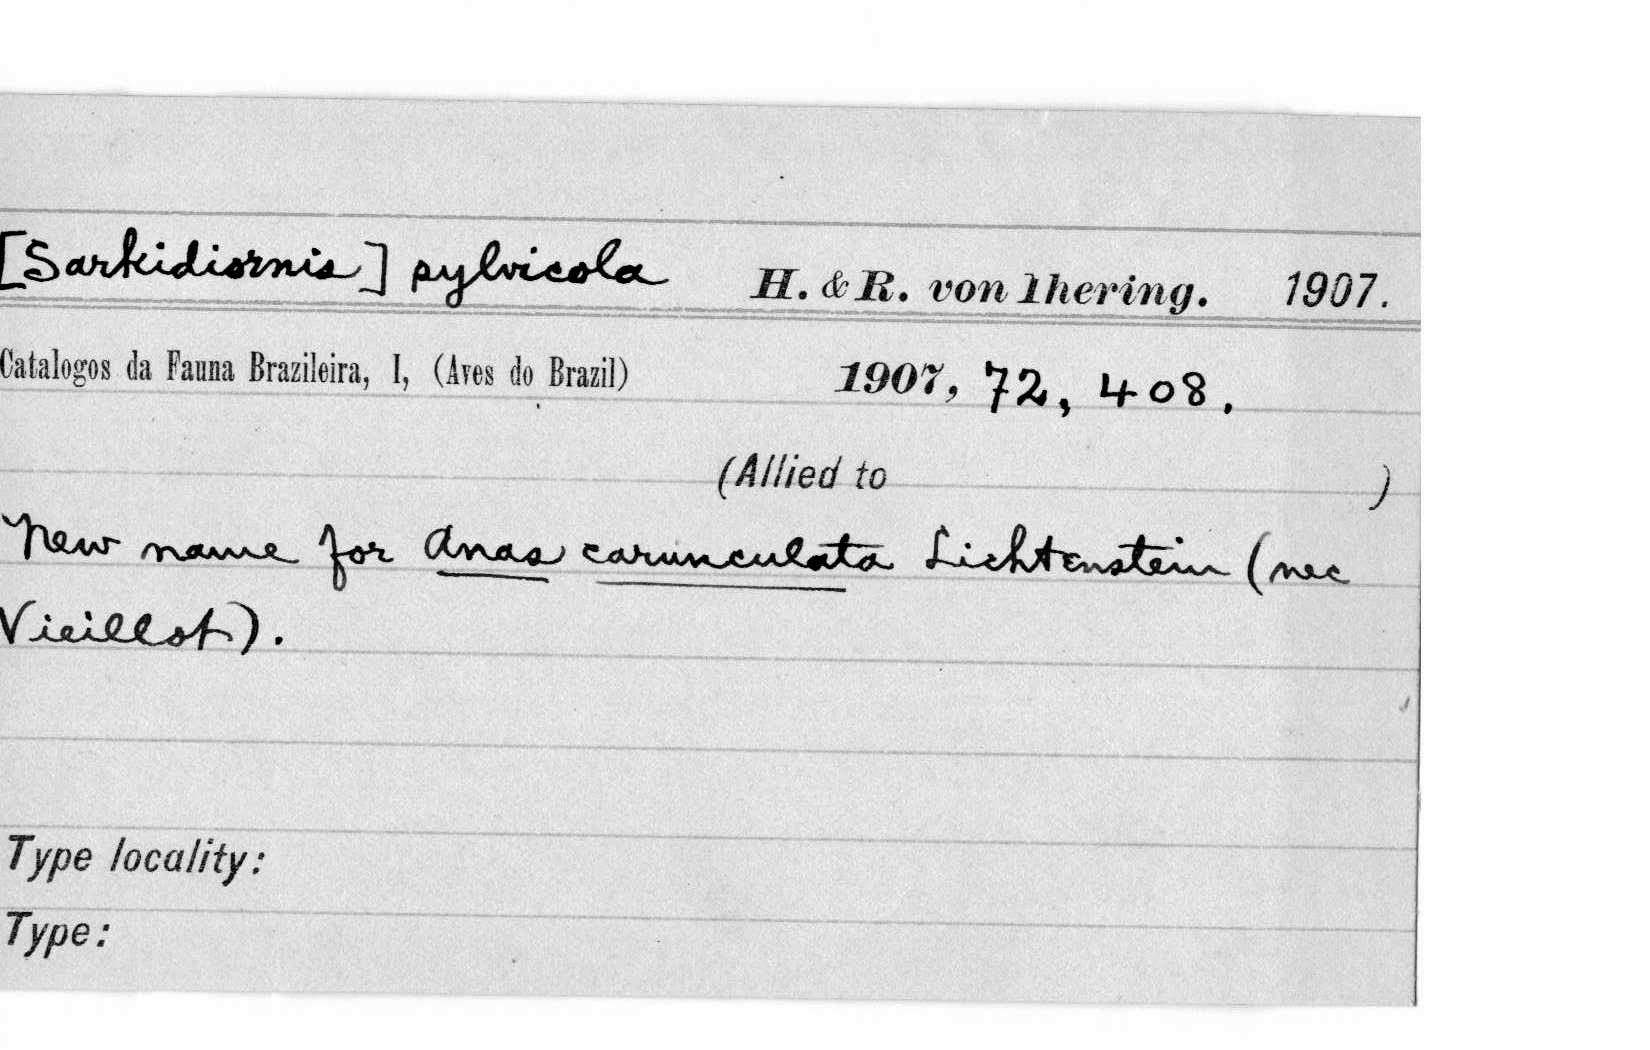 [Sarkidiornis] sylvicola H. & R. von Ihering. 1907.
Catalogos da Fauna Brazileira, I, (Aves do Brazil) 1907, 72, 408.
(Allied to )
New name for Anas carunculata Lichtenstein (nec
Vieillot).
Type locality:
Type: